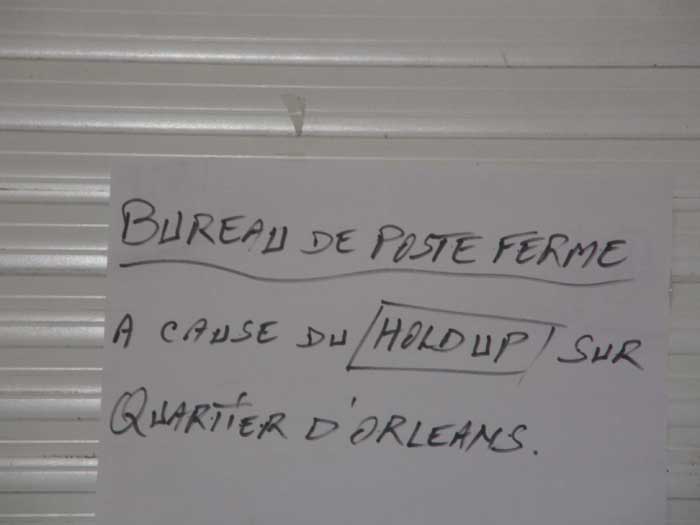 BUREAU DE POSTE FERME
A CAUSE DU HOLD UP SUR
QUARTIER D'ORLEANS.